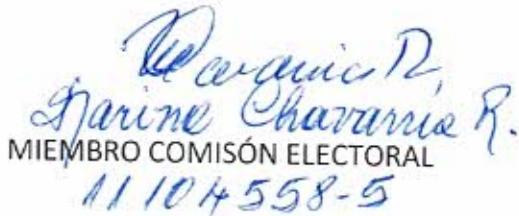 Chavarria R.
MIEMBRO COMISÓN ELECTORAL
11104558-5